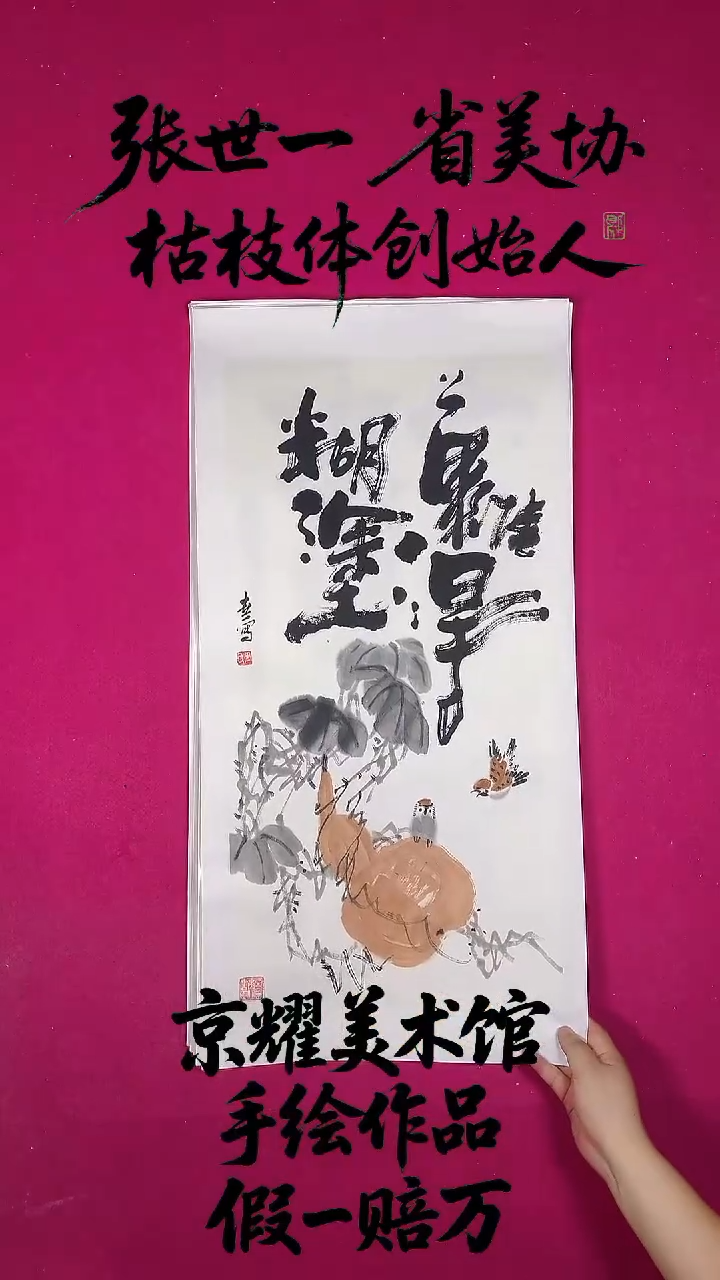 张世一 省美协
枯枝体创始人
难得
糊塗
世一写
京耀美术馆
手绘作品
假一赔万